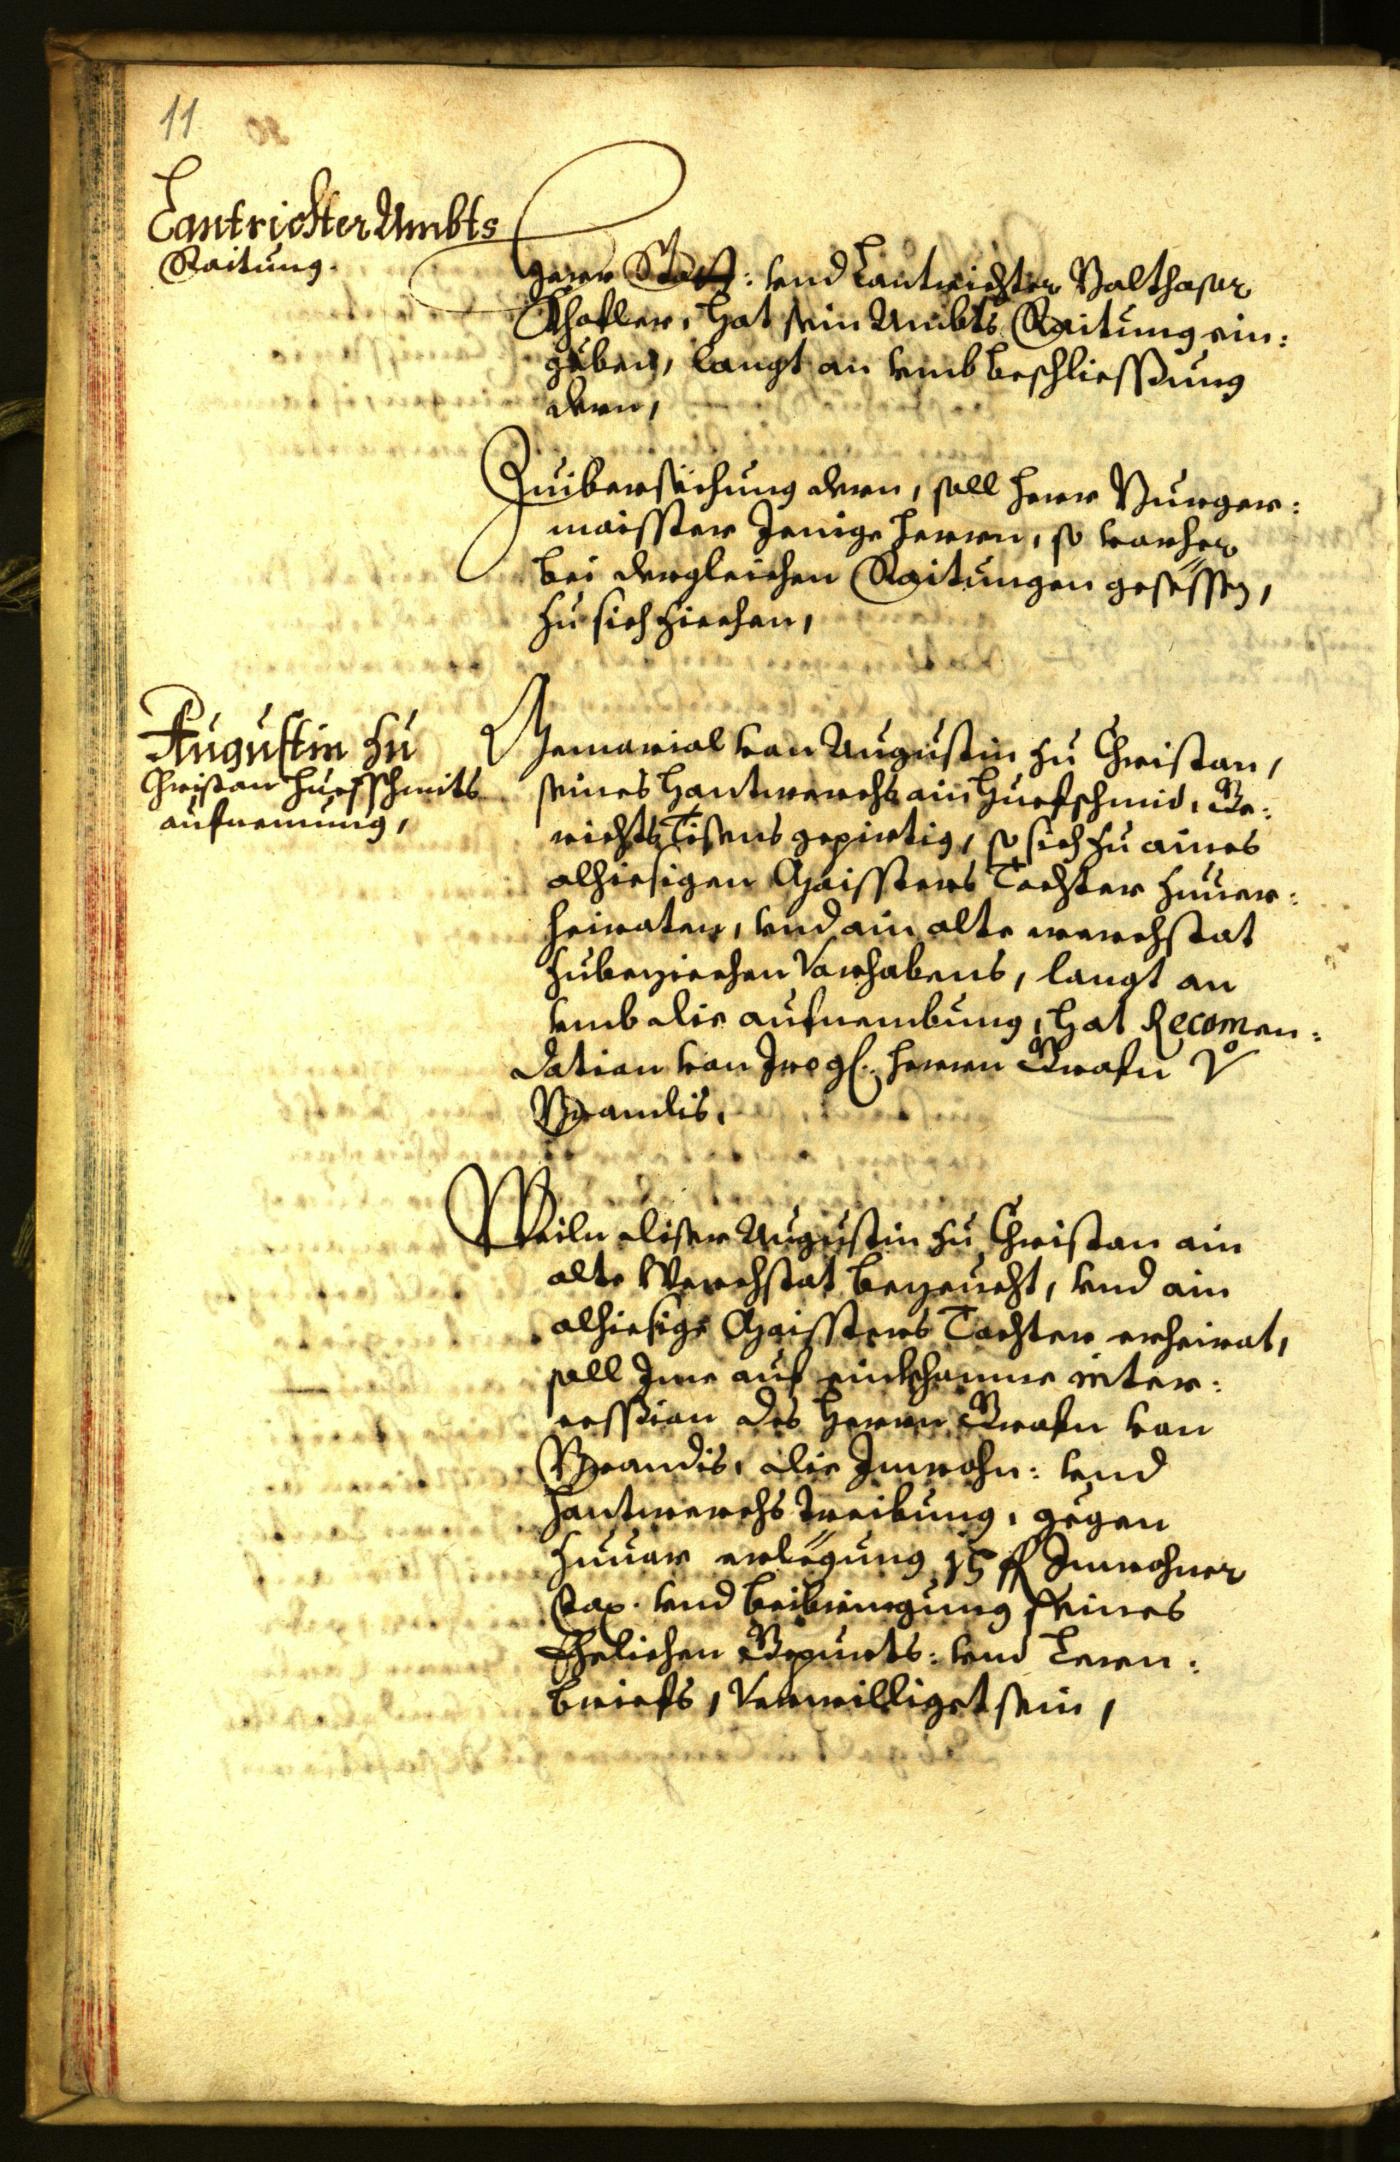 11
Lantrichter Ambts
Raitung.
Herr Statt: vnd Lantrichter Balthaser
hat sein Ambts Raitung ein:
geben, langt an vmb beschliessung
deren,
Zuibersechung deren, soll herr Burger:
maisster Jenige herren, so vorher
bei dergleichen Raitungen gesessen,
zu sich ziechen,
Augustin zu
Christan Huefschmits
aufnemung,
Memorial von Augustin zu Christan,
seines Hantwerchs ain Huefschmid, Ge:
richts Tisens gepirtig, so sich zu aines
alhiesigen Maissters Tochter zuuer:
heiraten, vnd ain alte werchstat
zubeziechen Vorhabens, langt an
vmb die aufnembung, hat Recomen:
dation von Iro gl: herrn Grafn Vo
Brandis,
Weiln diser Augustin zu Christan ain
alte Werchstat bezeucht, vnd ain
alhiesige Maissters Tochter erheirat,
soll Ime auf einkhomne inter:
cession des herrn Grafn von
Brandis, die Inwohn: vnd
Hantwerchs Treibung, gegen
zuuor erlegung 15 fl Inwohner
Tax. vnd beibringung seines
Ehelichen Gepurts: vnd Lern:
briefs, Verwilliget sein,